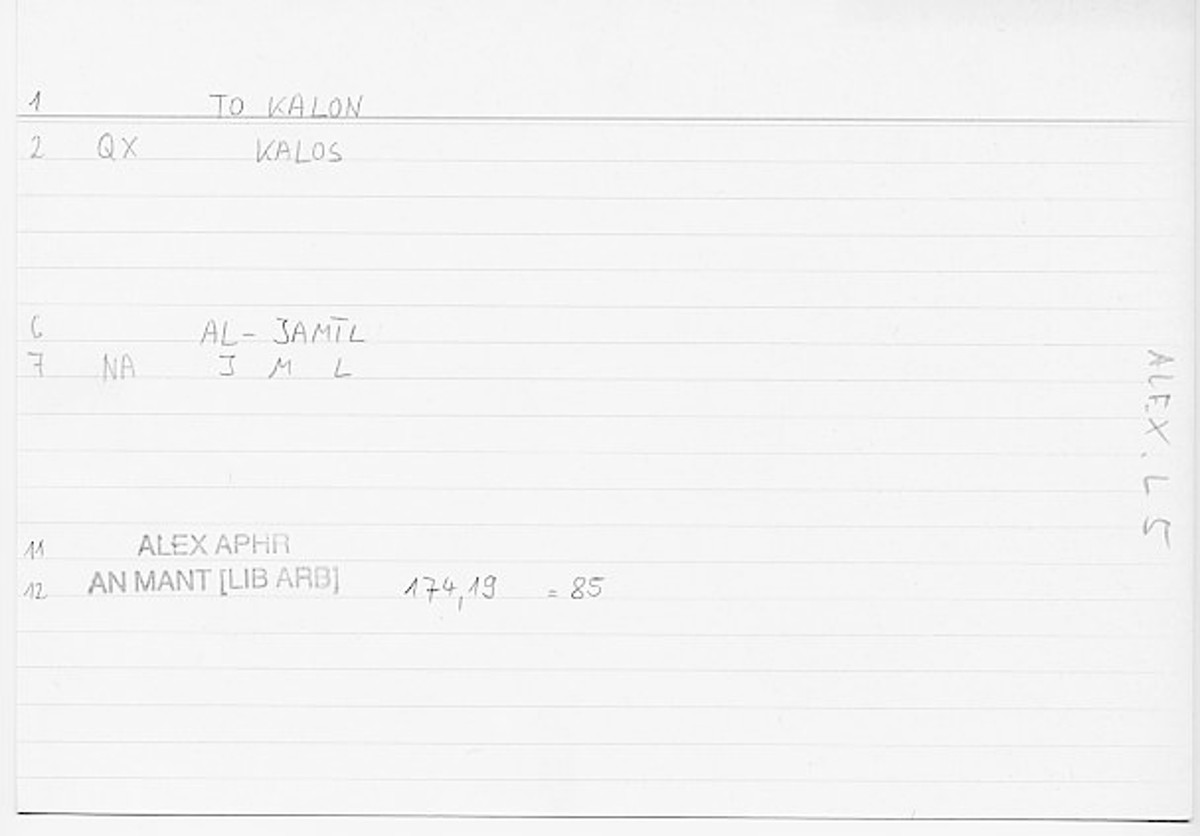 1 TO KALON
2 QX KALOS
6 AL-JAMĪL
7 NA J M L
11 ALEX APHR
12 AN MANT [LIB ARB] 174,19 = 85
ALEX. L 5